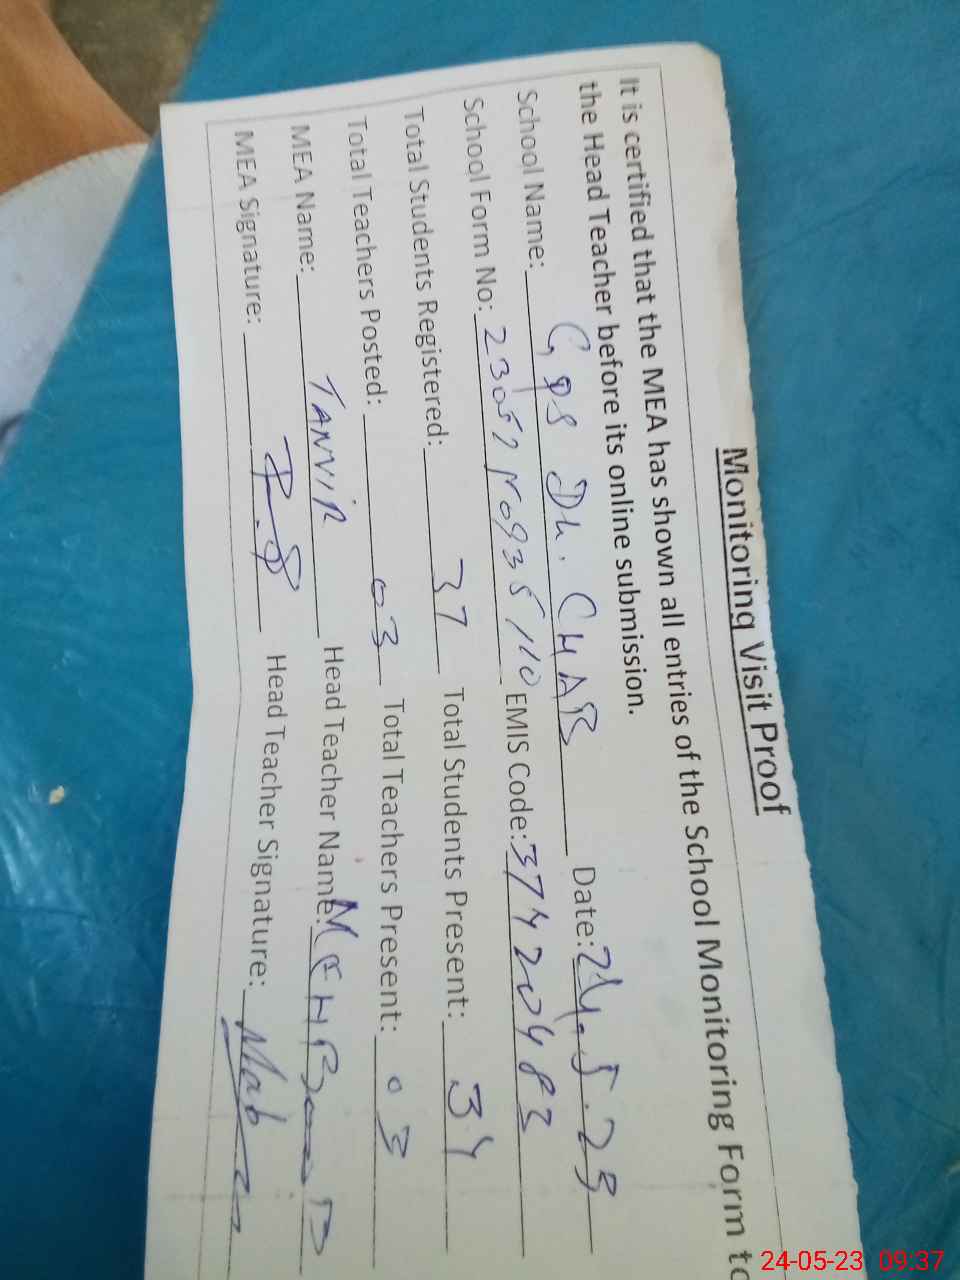 Monitoring Visit Proof
It is certified that the MEA has shown all entries of the School Monitoring Form to
the Head Teacher before its online submission.
School Name: GPS Dh. CHAB Date: 24.5.23
School Form No: EMIS Code: 37420483
Total Students Registered: 37 Total Students Present: 34
Total Teachers Posted: 03 Total Teachers Present: 03
MEA Name: TANVIR Head Teacher Name:
MEA Signature: Head Teacher Signature:
24-05-23 09:37